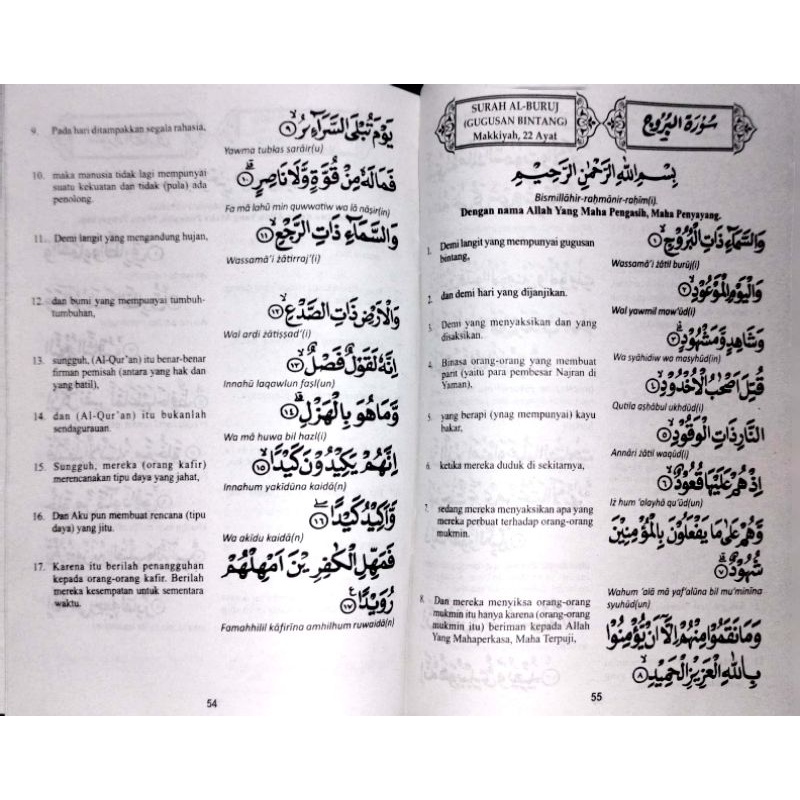 9. Pada hari ditampakkan segala rahasia,
يَوْمَ تُبْلَى السَّرَآىِٕرُۙ ٩
Yawma tublas sarāir(u)
10. maka manusia tidak lagi mempunyai
suatu kekuatan dan tidak (pula) ada
penolong.
فَمَا لَهٗ مِنْ قُوَّةٍ وَّلَا نَاصِرٍۗ ١٠
Fa mā lahū min quwwatiw wa lā nāṣir(in)
11. Demi langit yang mengandung hujan,
وَالسَّمَاۤءِ ذَاتِ الرَّجْعِۙ ١١
Wassamā'i żātirraj'(i)
12. dan bumi yang mempunyai tumbuh-
tumbuhan,
وَالْاَرْضِ ذَاتِ الصَّدْعِۙ ١٢
Wal ardi żātiṣṣad'(i)
13. sungguh, (Al-Qur'an) itu benar-benar
firman pemisah (antara yang hak dan
yang batil),
اِنَّهٗ لَقَوْلٌ فَصْلٌۙ ١٣
Innahū laqawlun faṣl(un)
14. dan (Al-Qur'an) itu bukanlah
sendagurauan.
وَمَا هُوَ بِالْهَزْلِۗ ١٤
Wa mā huwa bil hazl(i)
15. Sungguh, mereka (orang kafir)
merencanakan tipu daya yang jahat,
اِنَّهُمْ يَكِيْدُوْنَ كَيْدًاۙ ١٥
Innahum yakīdūna kaidā(n)
16. Dan Aku pun membuat rencana (tipu
daya) yang jitu.
وَّاَكِيْدُ كَيْدًاۖ ١٦
Wa akīdu kaidā(n)
17. Karena itu berilah penangguhan
kepada orang-orang kafir. Berilah
mereka kesempatan untuk sementara
waktu.
فَمَهِّلِ الْكٰفِرِيْنَ اَمْهِلْهُمْ
رُوَيْدًا ࣖ ١٧
Famahhilil kāfirīna amhilhum ruwaidā(n)
54
SURAH AL-BURUJ
(GUGUSAN BINTANG)
Makkiyah, 22 Ayat
سُوْرَةُ الْبُرُوْجِ
بِسْمِ اللهِ الرَّحْمٰنِ الرَّحِيْمِ
Bismillāhir-raḥmānir-raḥīm(i).
Dengan nama Allah Yang Maha Pengasih, Maha Penyayang.
1. Demi langit yang mempunyai gugusan
bintang,
وَالسَّمَاۤءِ ذَاتِ الْبُرُوْجِۙ ١
Wassamā'i żātil burūj(i)
2. dan demi hari yang dijanjikan.
وَالْيَوْمِ الْمَوْعُوْدِۙ ٢
Wal yawmil maw'ūd(i)
3. Demi yang menyaksikan dan yang
disaksikan.
وَشَاهِدٍ وَّمَشْهُوْدٍۗ ٣
Wa syāhidiw wa masyhūd(in)
4. Binasa orang-orang yang membuat
parit (yaitu para pembesar Najran di
Yaman),
قُتِلَ اَصْحٰبُ الْاُخْدُوْدِۙ ٤
Qutila aṣḥābul ukhdūd(i)
5. yang berapi (ynag mempunyai) kayu
bakar,
النَّارِ ذَاتِ الْوَقُوْدِۙ ٥
Annāri żātil waqūd(i)
6. ketika mereka duduk di sekitarnya,
اِذْ هُمْ عَلَيْهَا قُعُوْدٌۙ ٦
Iż hum 'alayhā qu'ūd(un)
7. sedang mereka menyaksikan apa yang
mereka perbuat terhadap orang-orang
mukmin.
وَّهُمْ عَلٰى مَا يَفْعَلُوْنَ بِالْمُؤْمِنِيْنَ
شُهُوْدٌۗ ٧
Wahum 'alā mā yaf'alūna bil mu'minīna
syuhūd(un)
8. Dan mereka menyiksa orang-orang
mukmin itu hanya karena (orang-orang
mukmin itu) beriman kepada Allah
Yang Mahaperkasa, Maha Terpuji,
وَمَا نَقَمُوْا مِنْهُمْ اِلَّآ اَنْ يُّؤْمِنُوْا
بِاللّٰهِ الْعَزِيْزِ الْحَمِيْدِۙ ٨
55